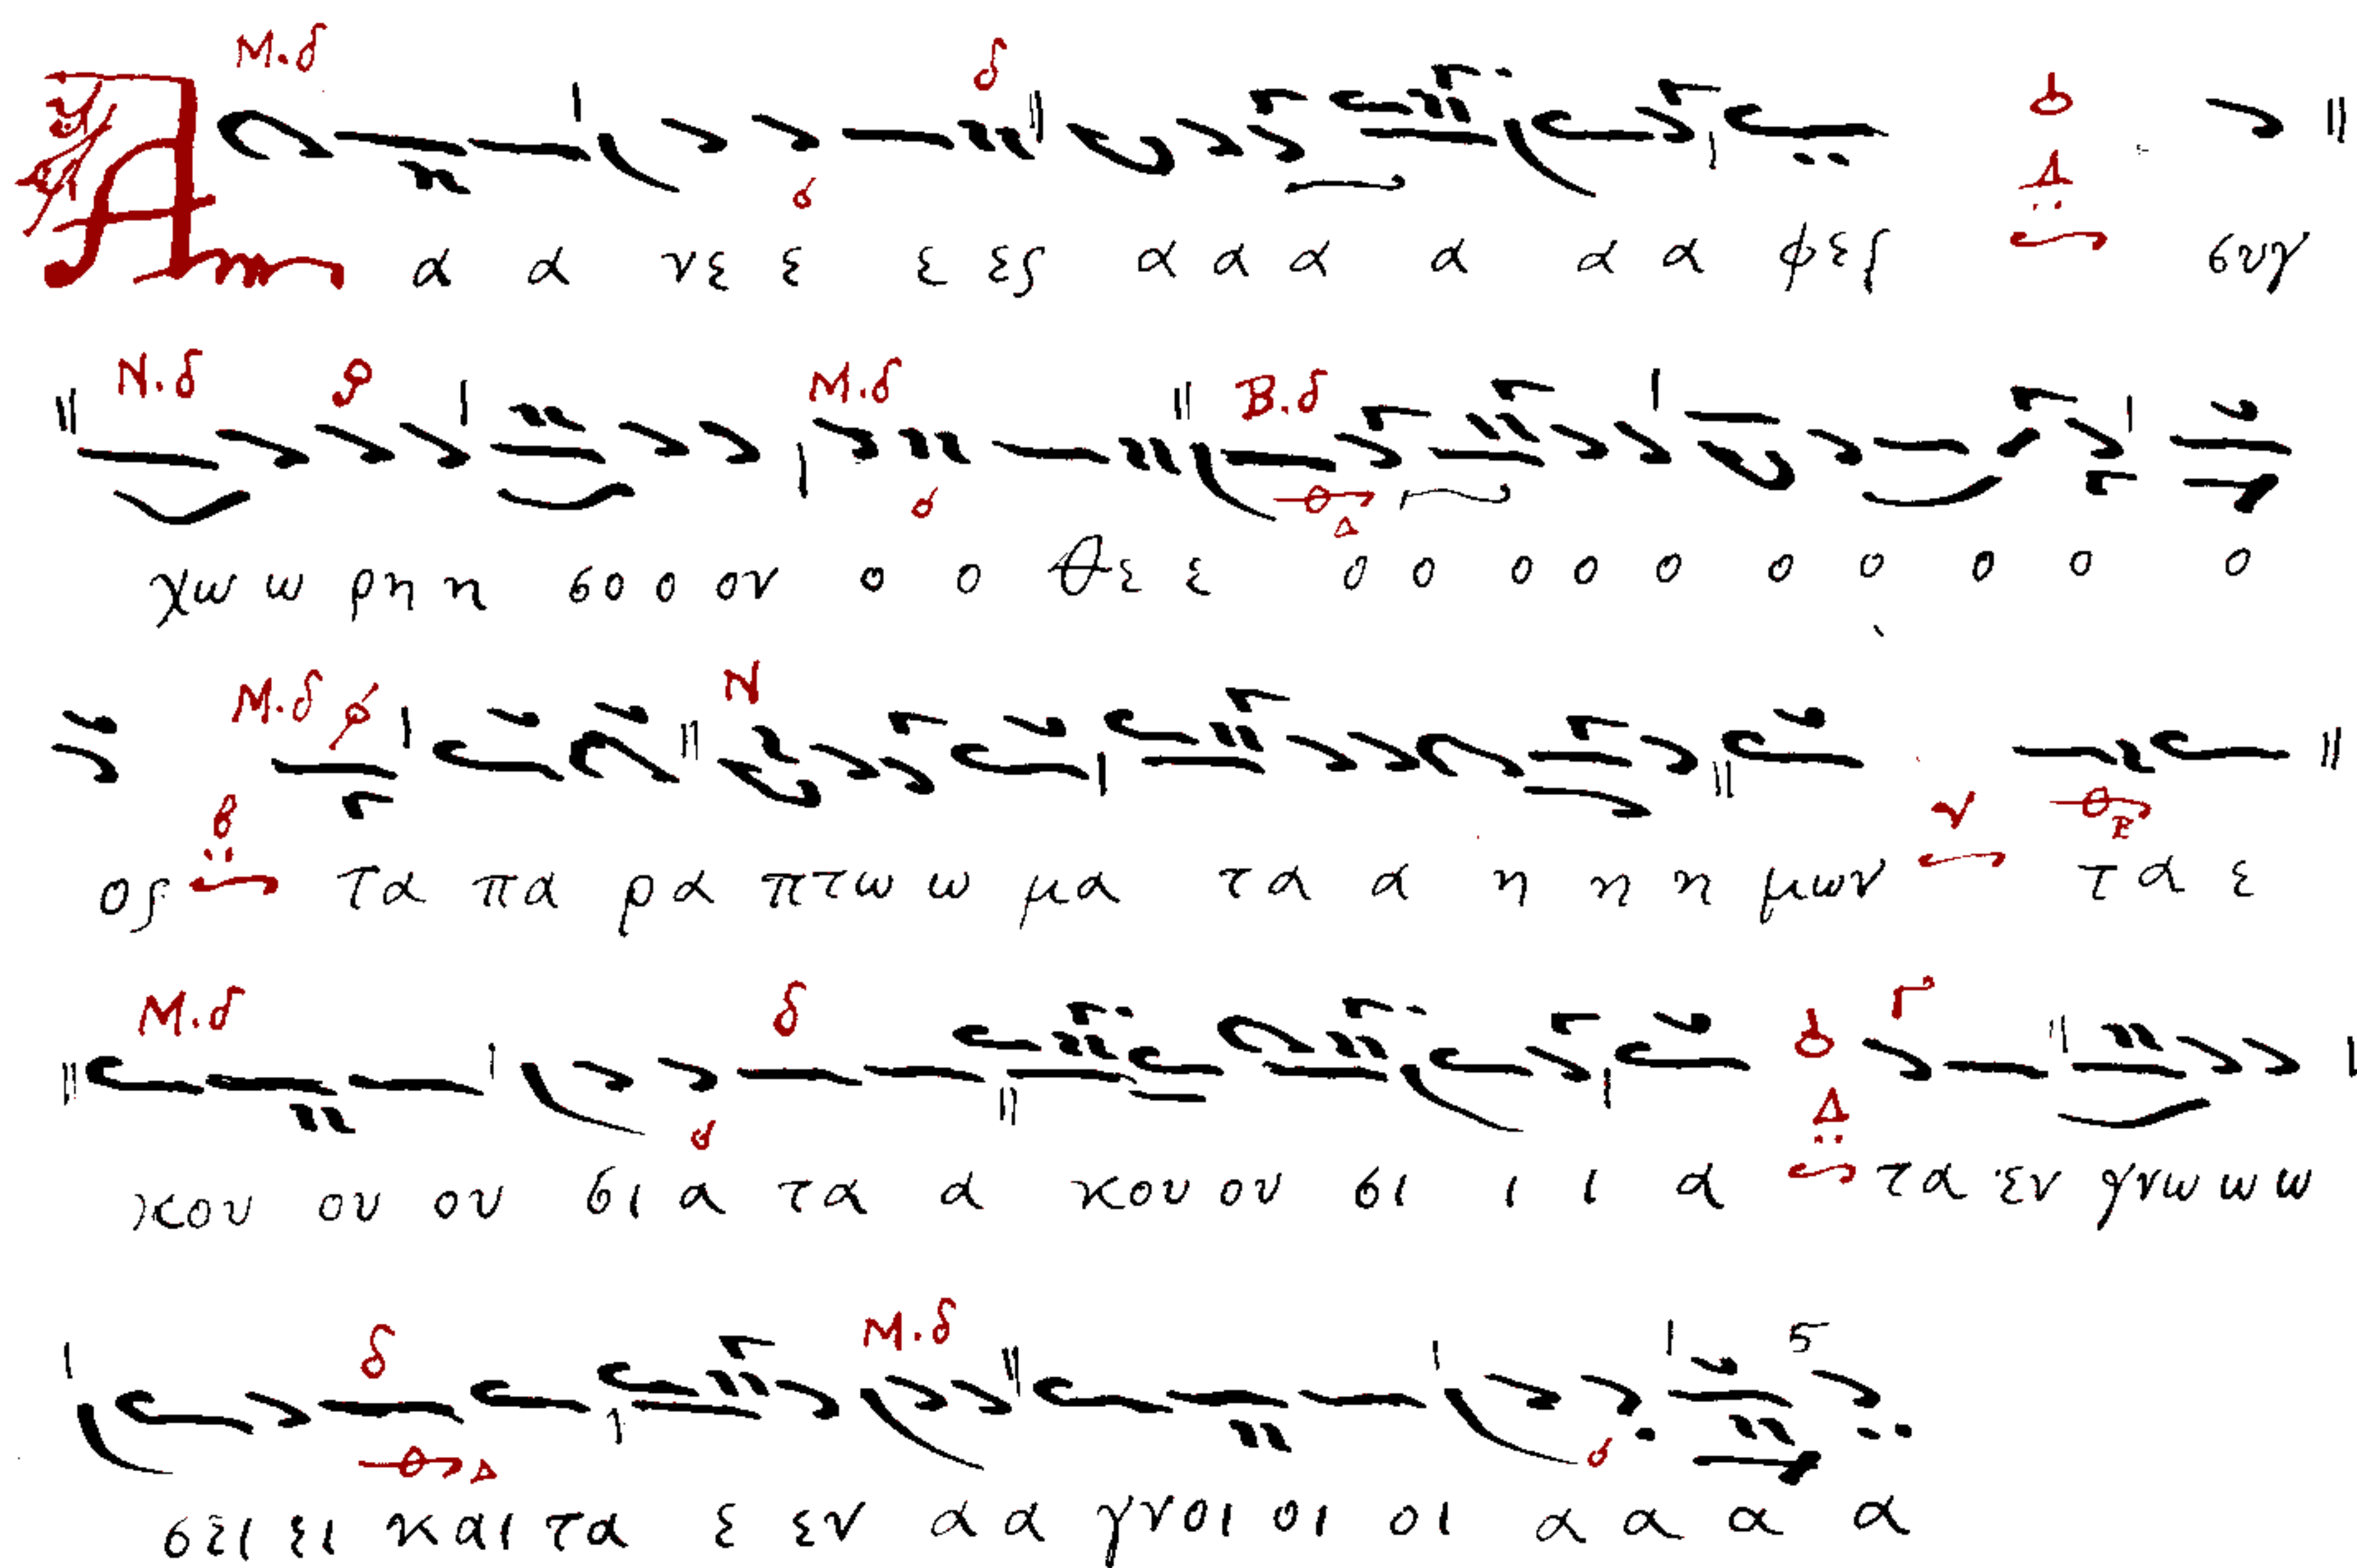 Α α α νε ε ε ες α α α α α α φες συγ
χω ω ρη η σο ο ον ο ο Θε ε ο ο ο ο ο ο ο ο ο ο
ος τα πα ρα πτω ω μα τα α η η η μων τα ε
κου ου ου σι α τα α κου ου σι ι ι α τα εν γνω ω ω
σει ει και τα ε εν α α γνοι οι οι α α α α